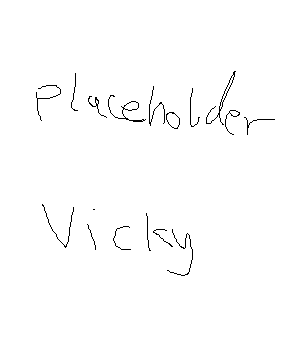 Placeholder
Vicky